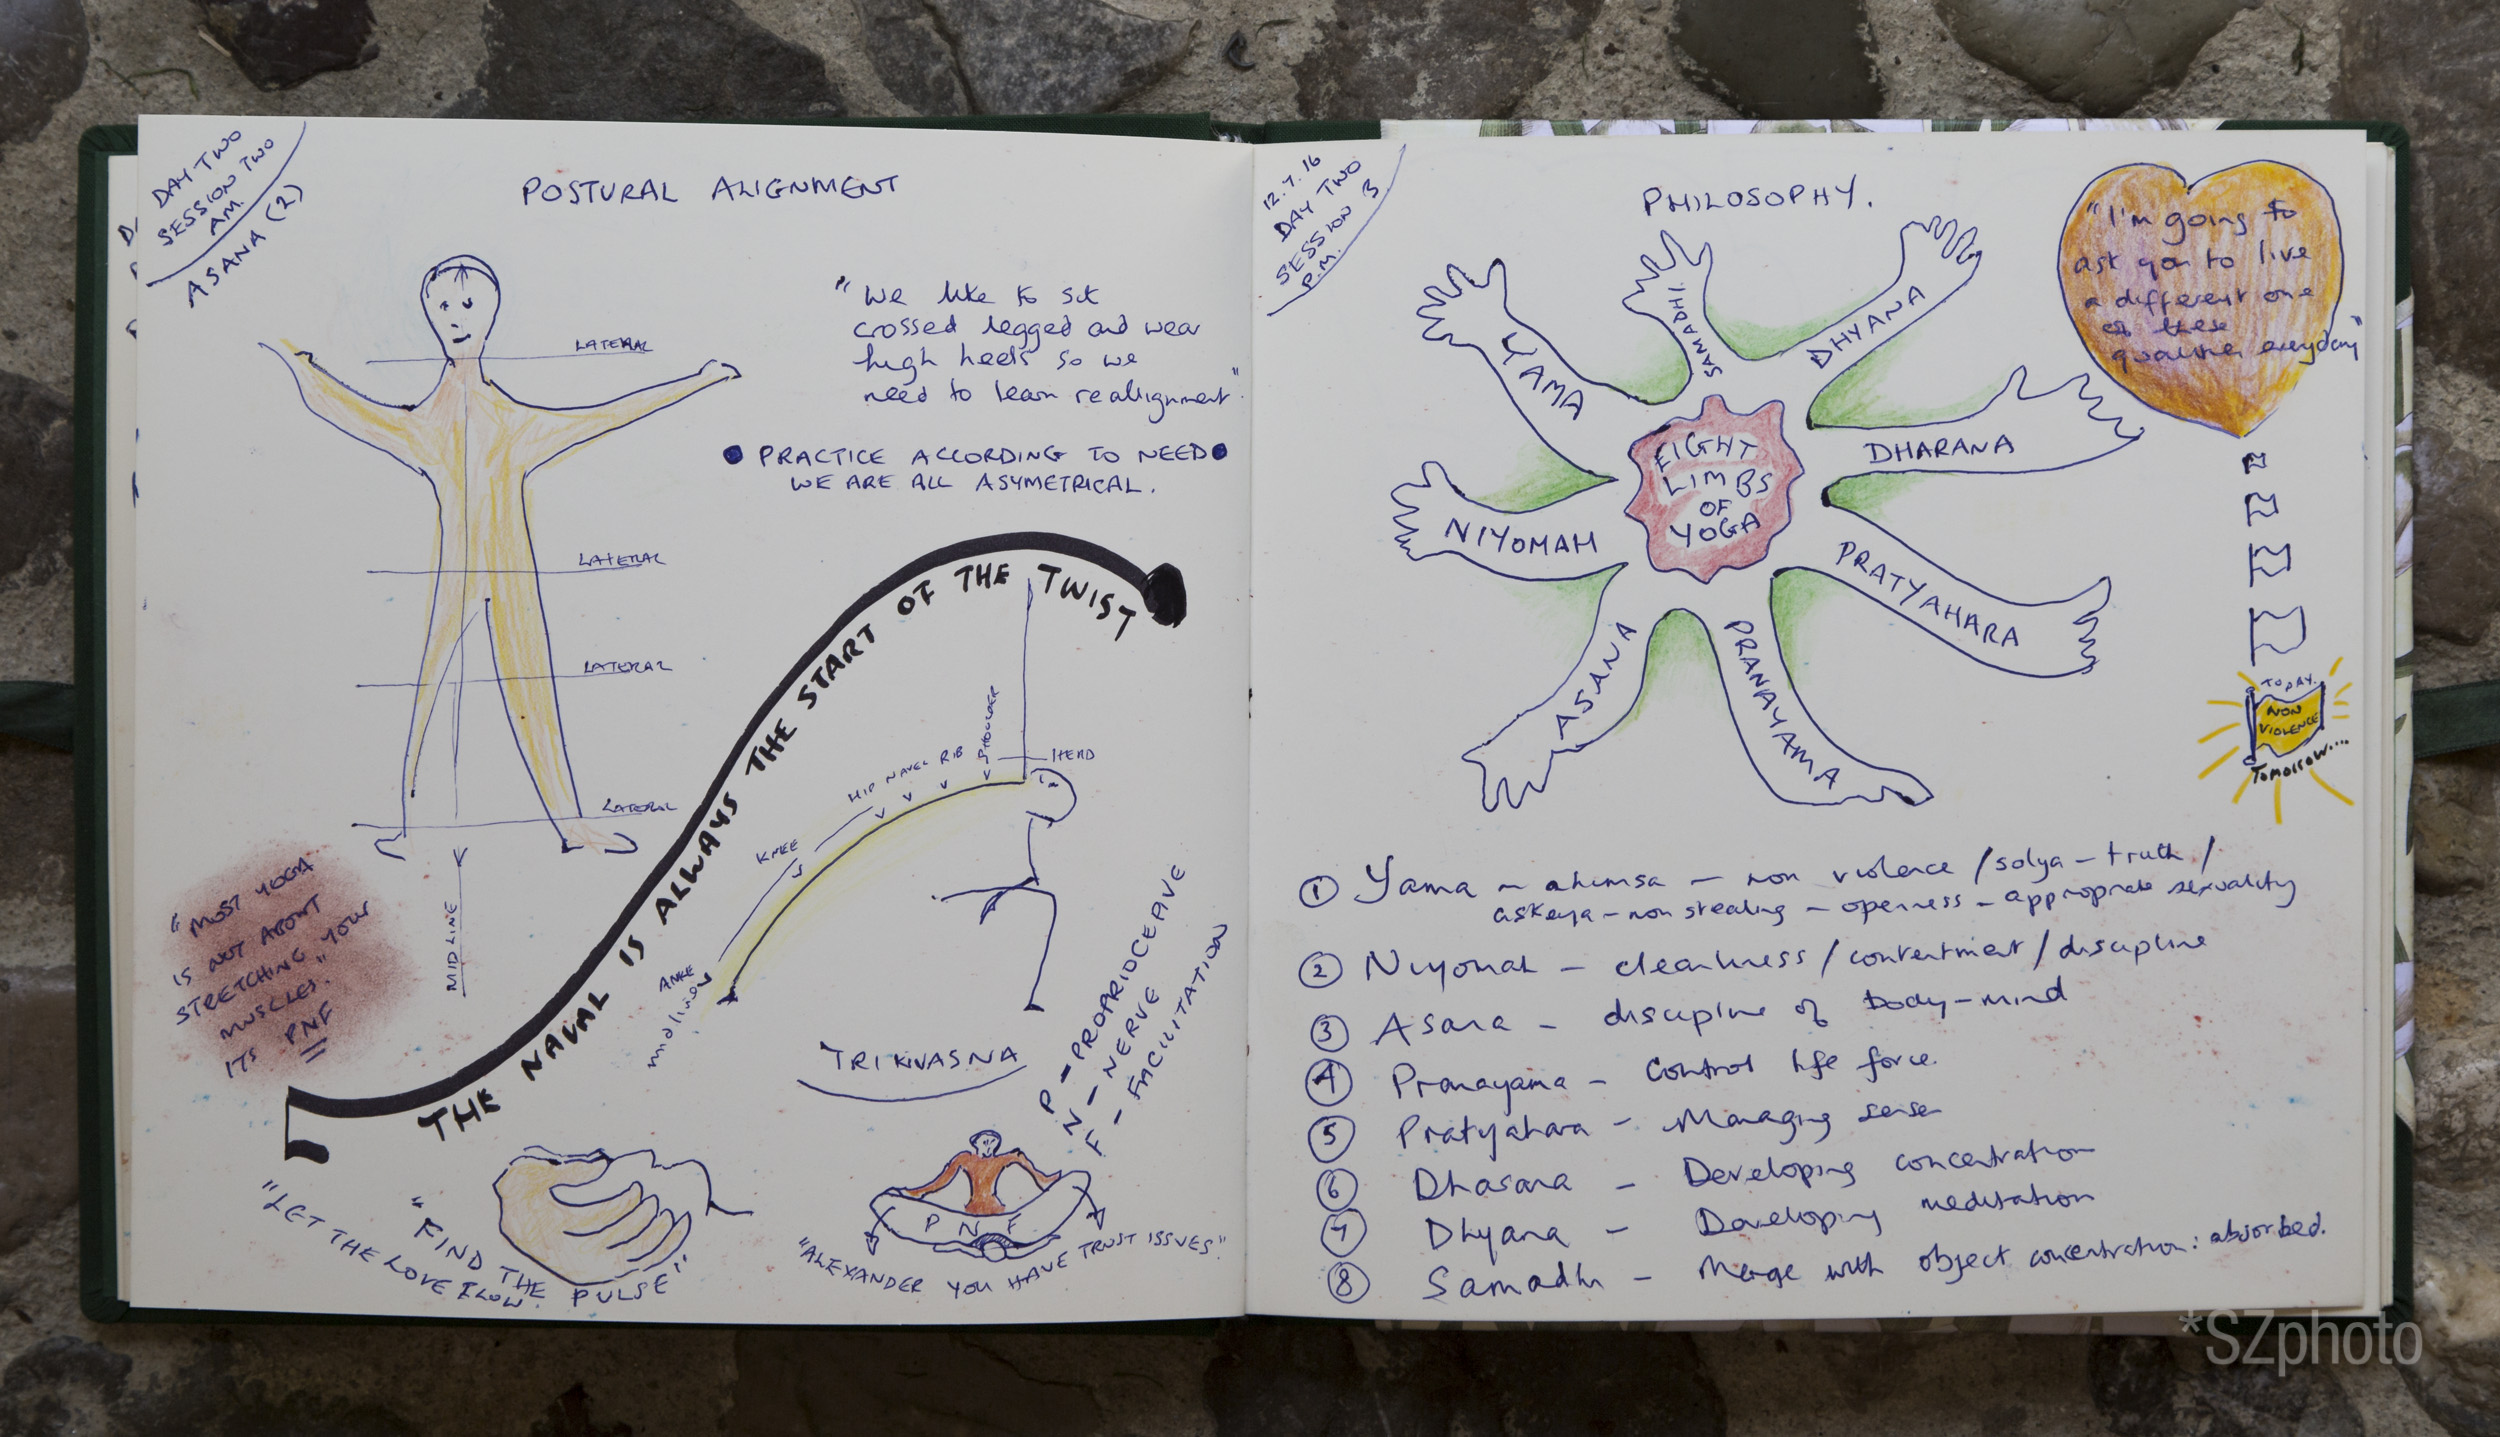 DAY TWO
SESSION TWO
AM.
ASANA (2)
POSTURAL ALIGNMENT
LATERAL
"We like to sit
crossed legged and wear
high heels so we
need to learn reallignment"
PRACTICE ACCORDING TO NEED
WE ARE ALL ASYMETRICAL.
LATERAL
LATERAL
LATERAL
MIDLINE
THE NAVAL IS ALWAYS THE START OF THE TWIST
HEAD
SHOULDER
RIB
NAVEL
HIP
KNEE
midline
TRIKVASNA
"MOST YOGA
IS NOT ABOUT
STRETCHING YOUR
MUSCLES."
ITS PNF
P - PROPARIOCEAVE
N - NERVE
F - FACILITATION
"LET THE LOVE FLOW.
"FIND THE PULSE"
P N F
"ALEXANDER YOU HAVE TRUST ISSUES".
12.7.16
DAY TWO
SESSION 3
P.M.
PHILOSOPHY.
"I'm going to
ask you to live
a different one
of these
qualities everyday"
EIGHT
LIMBS
OF
YOGA
YAMA
SAMADHI.
DHYANA
DHARANA
PRATYAHARA
PRANAYAMA
ASANA
NIYOMAH
TODAY.
NON
VIOLENCE
TOMORROW....
1 Yama - ahimsa - non violence / solya - truth /
askeya - non stealing - openness - appropriate sexuality
2 Niyomah - cleanliness / contentment / discipline
3 Asana - discipline of body-mind
4 Pranayama - Control life force.
5 Pratyahara - Managing sense
6 Dhasana - Developing concentration
7 Dhyana - Developing meditation
8 Samadhi - Merge with object concentration: absorbed.
*SZphoto